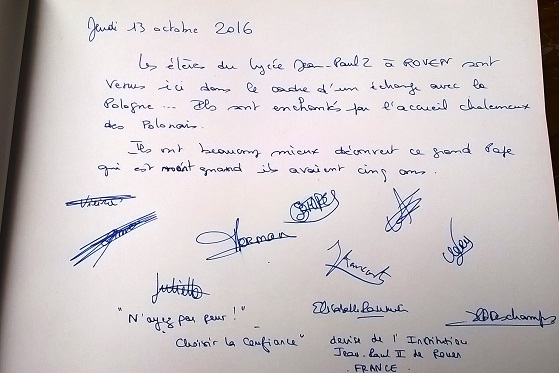 Jeudi 13 octobre 2016
Les élèves du lycée Jean-Paul 2 à ROUEN sont
venus ici dans le cadre d'un échange avec la
Pologne... Ils sont enchantés par l'accueil chaleureux
des Polonais.
Ils ont beaucoup mieux découvert ce grand Pape
qui est mort quand ils avaient cinq ans.
Herman
Juliette
"N'ayez pas peur!"
Choisir la Confiance"
Elisabeth
Deschamps
devise de l'Institution
Jean-Paul II de Rouen
.FRANCE.